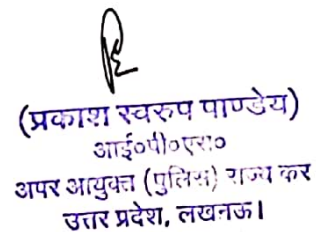 (प्रकाश स्वरुप पाण्डेय)
आई०पी०एस०
अपर आयुक्त (पुलिस) राज्य कर
उत्तर प्रदेश, लखनऊ।